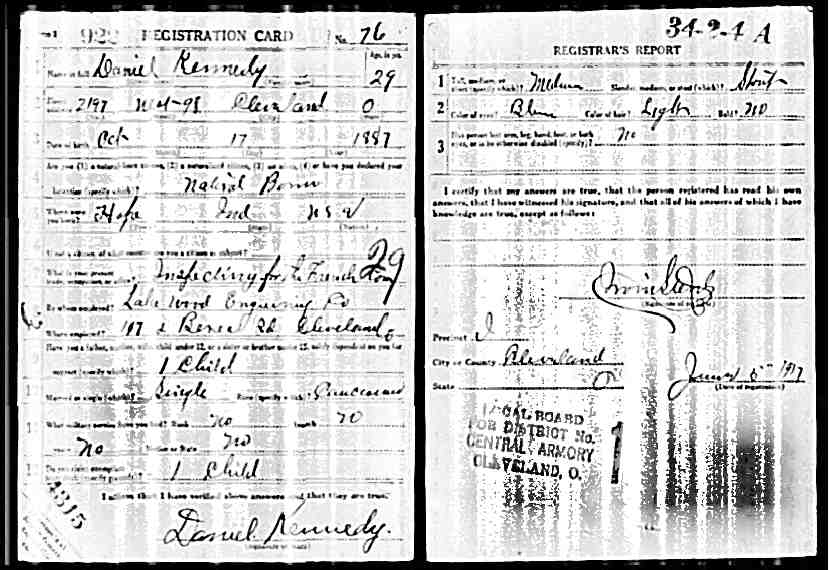 922 REGISTRATION CARD No. 76
Name in full Daniel Kennedy Age, in yrs. 29
2197 W 98 Cleveland O
Date of birth Oct 17 1887
Are you (1) a natural-born citizen, (2) a naturalized citizen, (3) an alien, (4) or have you declared your
intention (specify which)? Natural Born
Where were you born? Hope Ind
What is your present trade, occupation, or office? Inspecting for the French 29
By whom employed? Lakewood Engineering Co
Where employed? Berea Rd Cleveland O
Have you a father, mother, wife, child under 12, or a sister or brother under 12, solely dependent on you for
support (specify which)? 1 Child
Married or single (which)? Single Race (specify which)? Caucasian
What military service have you had? Rank no branch no
years no Nation or State no
Do you claim exemption from draft (specify grounds)? 1 Child
I affirm that I have verified above answers and that they are true.
Daniel Kennedy
4315
34-2-4 A
REGISTRAR'S REPORT
1 Tall, medium, or short (specify which)? Medium Slender, medium, or stout (which)? Stout
2 Color of eyes? Blue Color of hair? Light Bald? no
3 Has person lost arm, leg, hand, foot, or both eyes, or is he otherwise disabled (specify)? no
I certify that my answers are true, that the person registered has read his own
answers, that I have witnessed his signature, and that all of his answers of which I have
knowledge are true, except as follows:
(Signature of registrar)
Precinct I
City or County Cleveland
State O
June 5 1917
(Date of registration)
LOCAL BOARD
FOR DISTRICT No. 1
CENTRAL ARMORY
CLEVELAND, O.